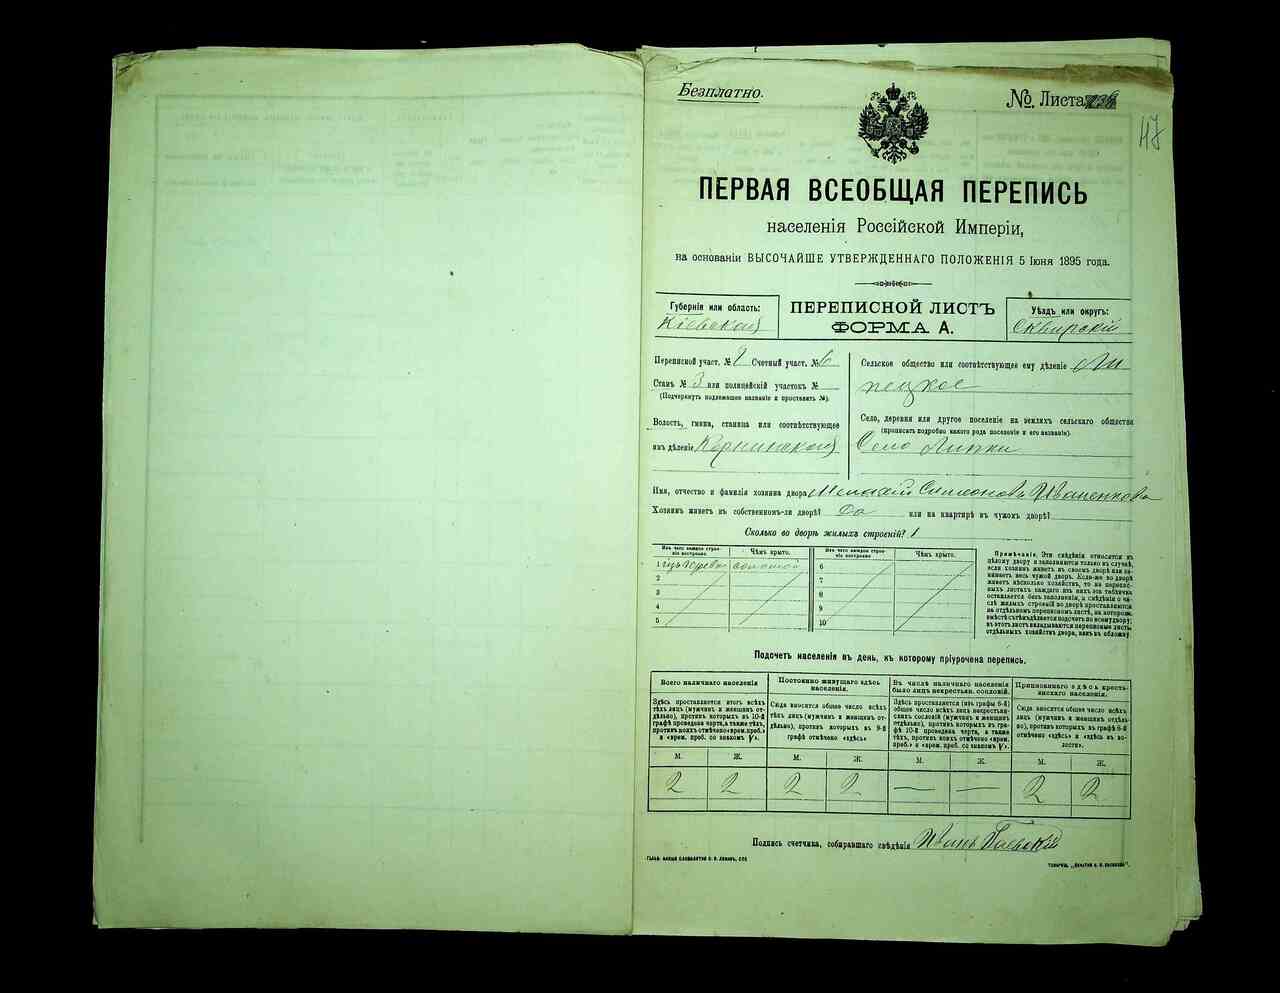 Безплатно.
№. Листа
47
ПЕРВАЯ ВСЕОБЩАЯ ПЕРЕПИСЬ
населенія Россійской Имперіи,
на основаніи ВЫСОЧАЙШЕ УТВЕРЖДЕННАГО ПОЛОЖЕНІЯ 5 Іюня 1895 года.
Губернія или область:
Кіевской
ПЕРЕПИСНОЙ ЛИСТЪ
ФОРМА А.
Уѣздъ или округъ:
Сквирскій
Переписной участ. № 2 Счетный участ. № 6
Станъ № 3 или полицейскій участокъ №
(Подчеркнуть подлежащее названіе и проставить №).
Волость, гмина, станица или соотвѣтствующее
имъ дѣленіе Корнинской
Сельское общество или соотвѣтствующее ему дѣленіе Ли
пецкое
Село, деревня или другое поселеніе на земляхъ сельскаго общества
(прописать подробно какого рода поселеніе и его названіе).
Село Липки
Имя, отчество и фамилія хозяина двора Симеоновъ Иваненковъ
Хозяинъ живетъ въ собственномъ-ли дворѣ? Да или на квартирѣ въ чужомъ дворѣ?
Сколько во дворѣ жилыхъ строеній? 1
Изъ чего каждое строеніе построено
Чѣмъ крыто.
Изъ чего каждое строеніе построено
Чѣмъ крыто.
1 изъ дерева соломой
2
3
4
5
6
7
8
9
10
Примѣчаніе. Эти свѣдѣнія относятся къ
цѣлому двору и заполняются только въ случаѣ,
если хозяинъ живетъ въ своемъ дворѣ или за-
нимаетъ весь чужой дворъ. Если-же во дворѣ
живетъ нѣсколько хозяйствъ, то на перепис-
ныхъ листахъ каждаго изъ нихъ эта табличка
оставляется безъ заполненія, а свѣдѣнія о чи-
слѣ жилыхъ строеній во дворѣ проставляются
на отдѣльномъ переписномъ листѣ, на которомъ
вмѣстѣ съ тѣмъ дѣлается подсчетъ по всему двору;
въ этотъ листъ вкладываются переписные листы
отдѣльныхъ хозяйствъ двора, какъ въ обложку.
Подсчетъ населенія въ день, къ которому пріурочена перепись.
Всего наличнаго населенія
Здѣсь проставляется итогъ всѣхъ
тѣхъ лицъ (мужчинъ и женщинъ от-
дѣльно), противъ которыхъ въ 10-й
графѣ проведена черта, а также тѣхъ,
противъ коихъ отмѣчено «врем. преб.»
и «врем. преб. со знакомъ V».
Постоянно живущаго здѣсь
населенія.
Сюда вносится общее число всѣхъ
тѣхъ лицъ (мужчинъ и женщинъ от-
дѣльно), противъ которыхъ въ 9-й
графѣ отмѣчено «здѣсь»
Въ числѣ наличнаго населенія
было лицъ некрестьян. сословій.
Здѣсь проставляется (изъ графы 6-й)
общее число всѣхъ лицъ некрестьян-
скихъ сословій (мужчинъ и женщинъ
отдѣльно), противъ которыхъ въ гра-
фѣ 10-й проведена черта, а также
тѣхъ, противъ коихъ отмѣчено «врем.
преб.» и «врем. преб. со знакомъ V».
Приписаннаго здѣсь кресть-
янскаго населенія.
Сюда вносится общее число всѣхъ
лицъ (мужчинъ и женщинъ отдѣль-
но), противъ которыхъ въ графѣ 8-й
отмѣчено «здѣсь» и «здѣсь въ во-
лости».
М. Ж. М. Ж. М. Ж. М. Ж.
2 2 2 2 — — 2 2
Подпись счетчика, собиравшаго свѣдѣнія Иванъ